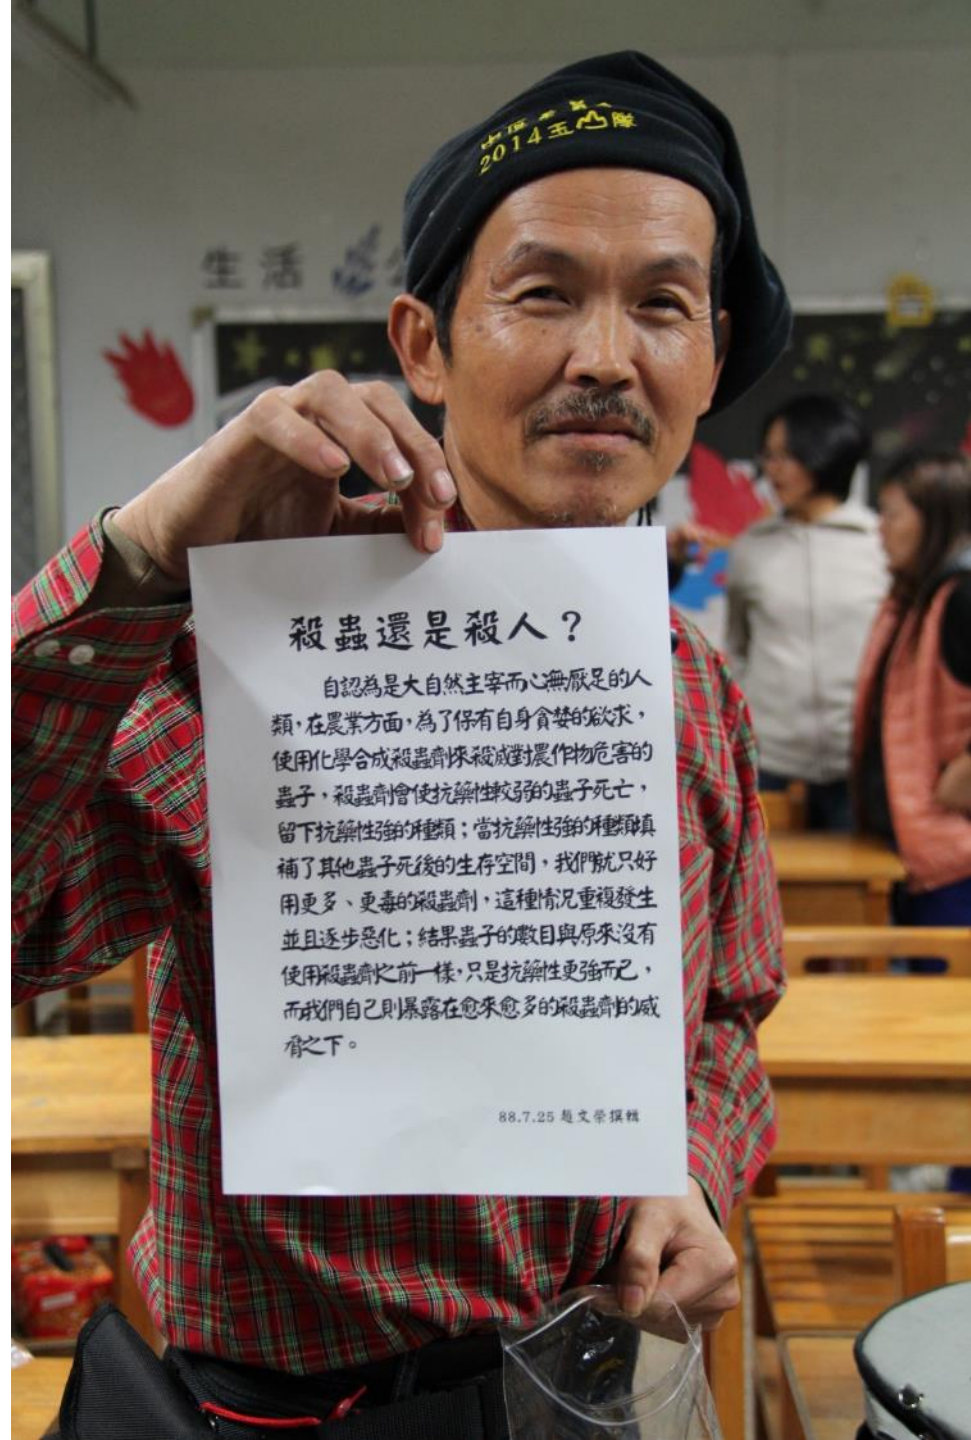 2014玉山隊
生活
殺蟲還是殺人？
自認為是大自然主宰而心無厭足的人
類，在農業方面，為了保有自身貪婪的欲求，
使用化學合成殺蟲劑來殺滅對農作物危害的
蟲子，殺蟲劑會使抗藥性較弱的蟲子死亡，
留下抗藥性強的種類；當抗藥性強的種類填
補了其他蟲子死後的生存空間，我們就只好
用更多、更毒的殺蟲劑，這種情況重複發生
並且逐步惡化；結果蟲子的數目與原來沒有
使用殺蟲劑之前一樣，只是抗藥性更強而己，
而我們自己則暴露在愈來愈多的殺蟲劑的威
脅之下。
88.7.25 趙文榮撰輯